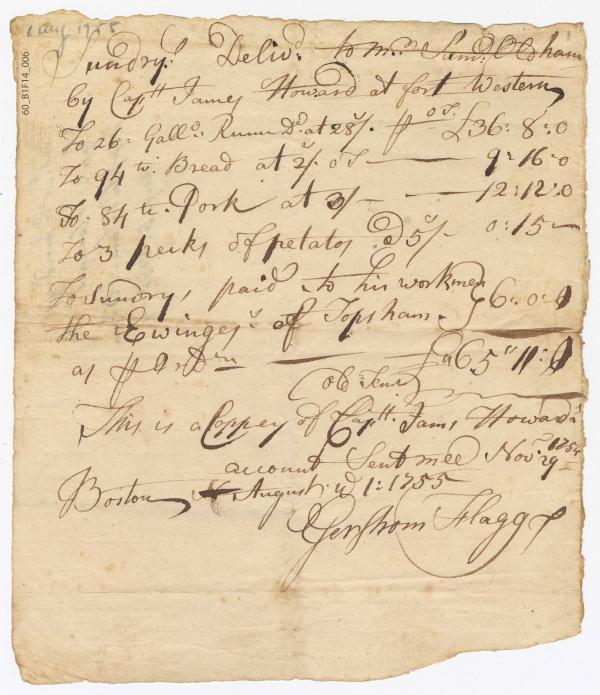 1 aug 1755
60_B1F14_006
Sundrys Deliv.d to mr. Sam.l Oldham
by Cap.tt James Howard at fort Western
To 26: Gallo.s Rumm Dd. at 28/. ₱ O T. £36: 8: 0
To 94 tw. Bread at 2/. O T — 9: 16: 0
To: 84 tw. Pork at 3/- — 12: 12: 0
To 3 pecks of petatos @ 5/- 0: 15 —
To Sundrys paid to his workmen
the Ewinges of Topsham. } 6: 0: 0
as ₱ Ordr. £65" 11: 0
Old Tenr
This is a Coppey of Capt.t Jams Howards
account Sent mee Nov.r 29 1754
Boston August ye 1: 1755
Gershom Flagg